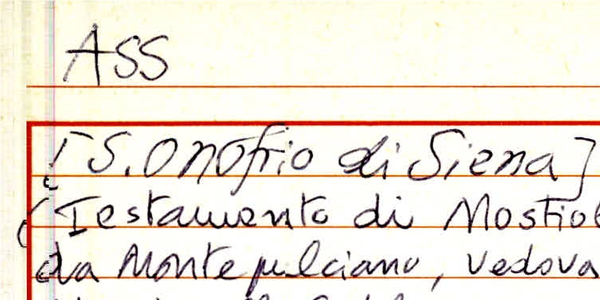 ASS
[S. Onofrio di Siena]
Testamento di Mostiol
da Montepulciano, vedova